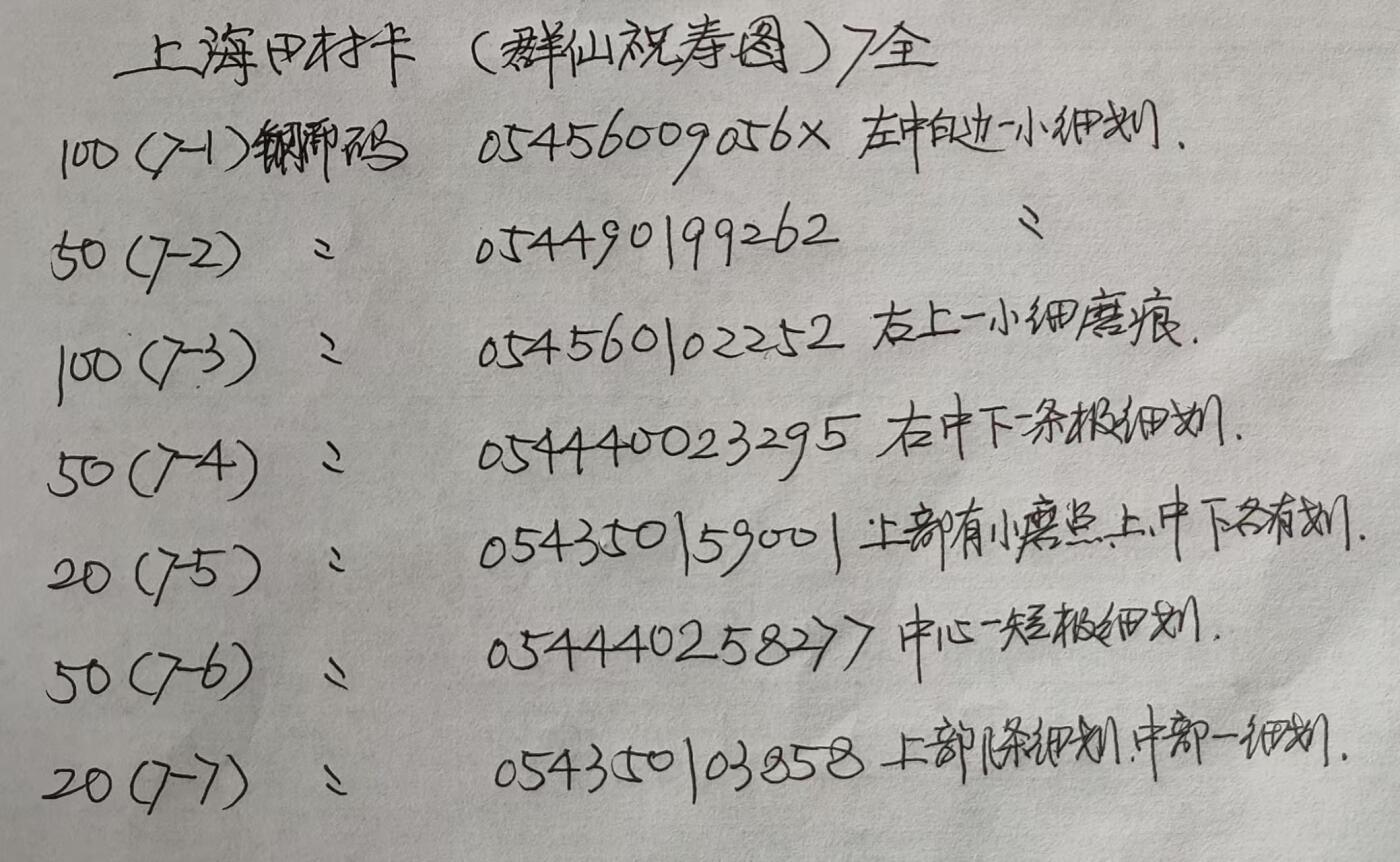 上海田村卡（群仙祝寿图）7全
100（7-1）钢印码 05456009056X 左中白边一小细划.
50（7-2） 〃 054490199262 〃
100（7-3） 〃 054560102252 右上一小细磨痕.
50（7-4） 〃 054440023295 右中下一条极细划.
20（7-5） 〃 054350159001 上部有小磨点上.中下各有划.
50（7-6） 〃 054440258277 中心一短极细划.
20（7-7） 〃 054350103858 上部1条细划.中部一细划.